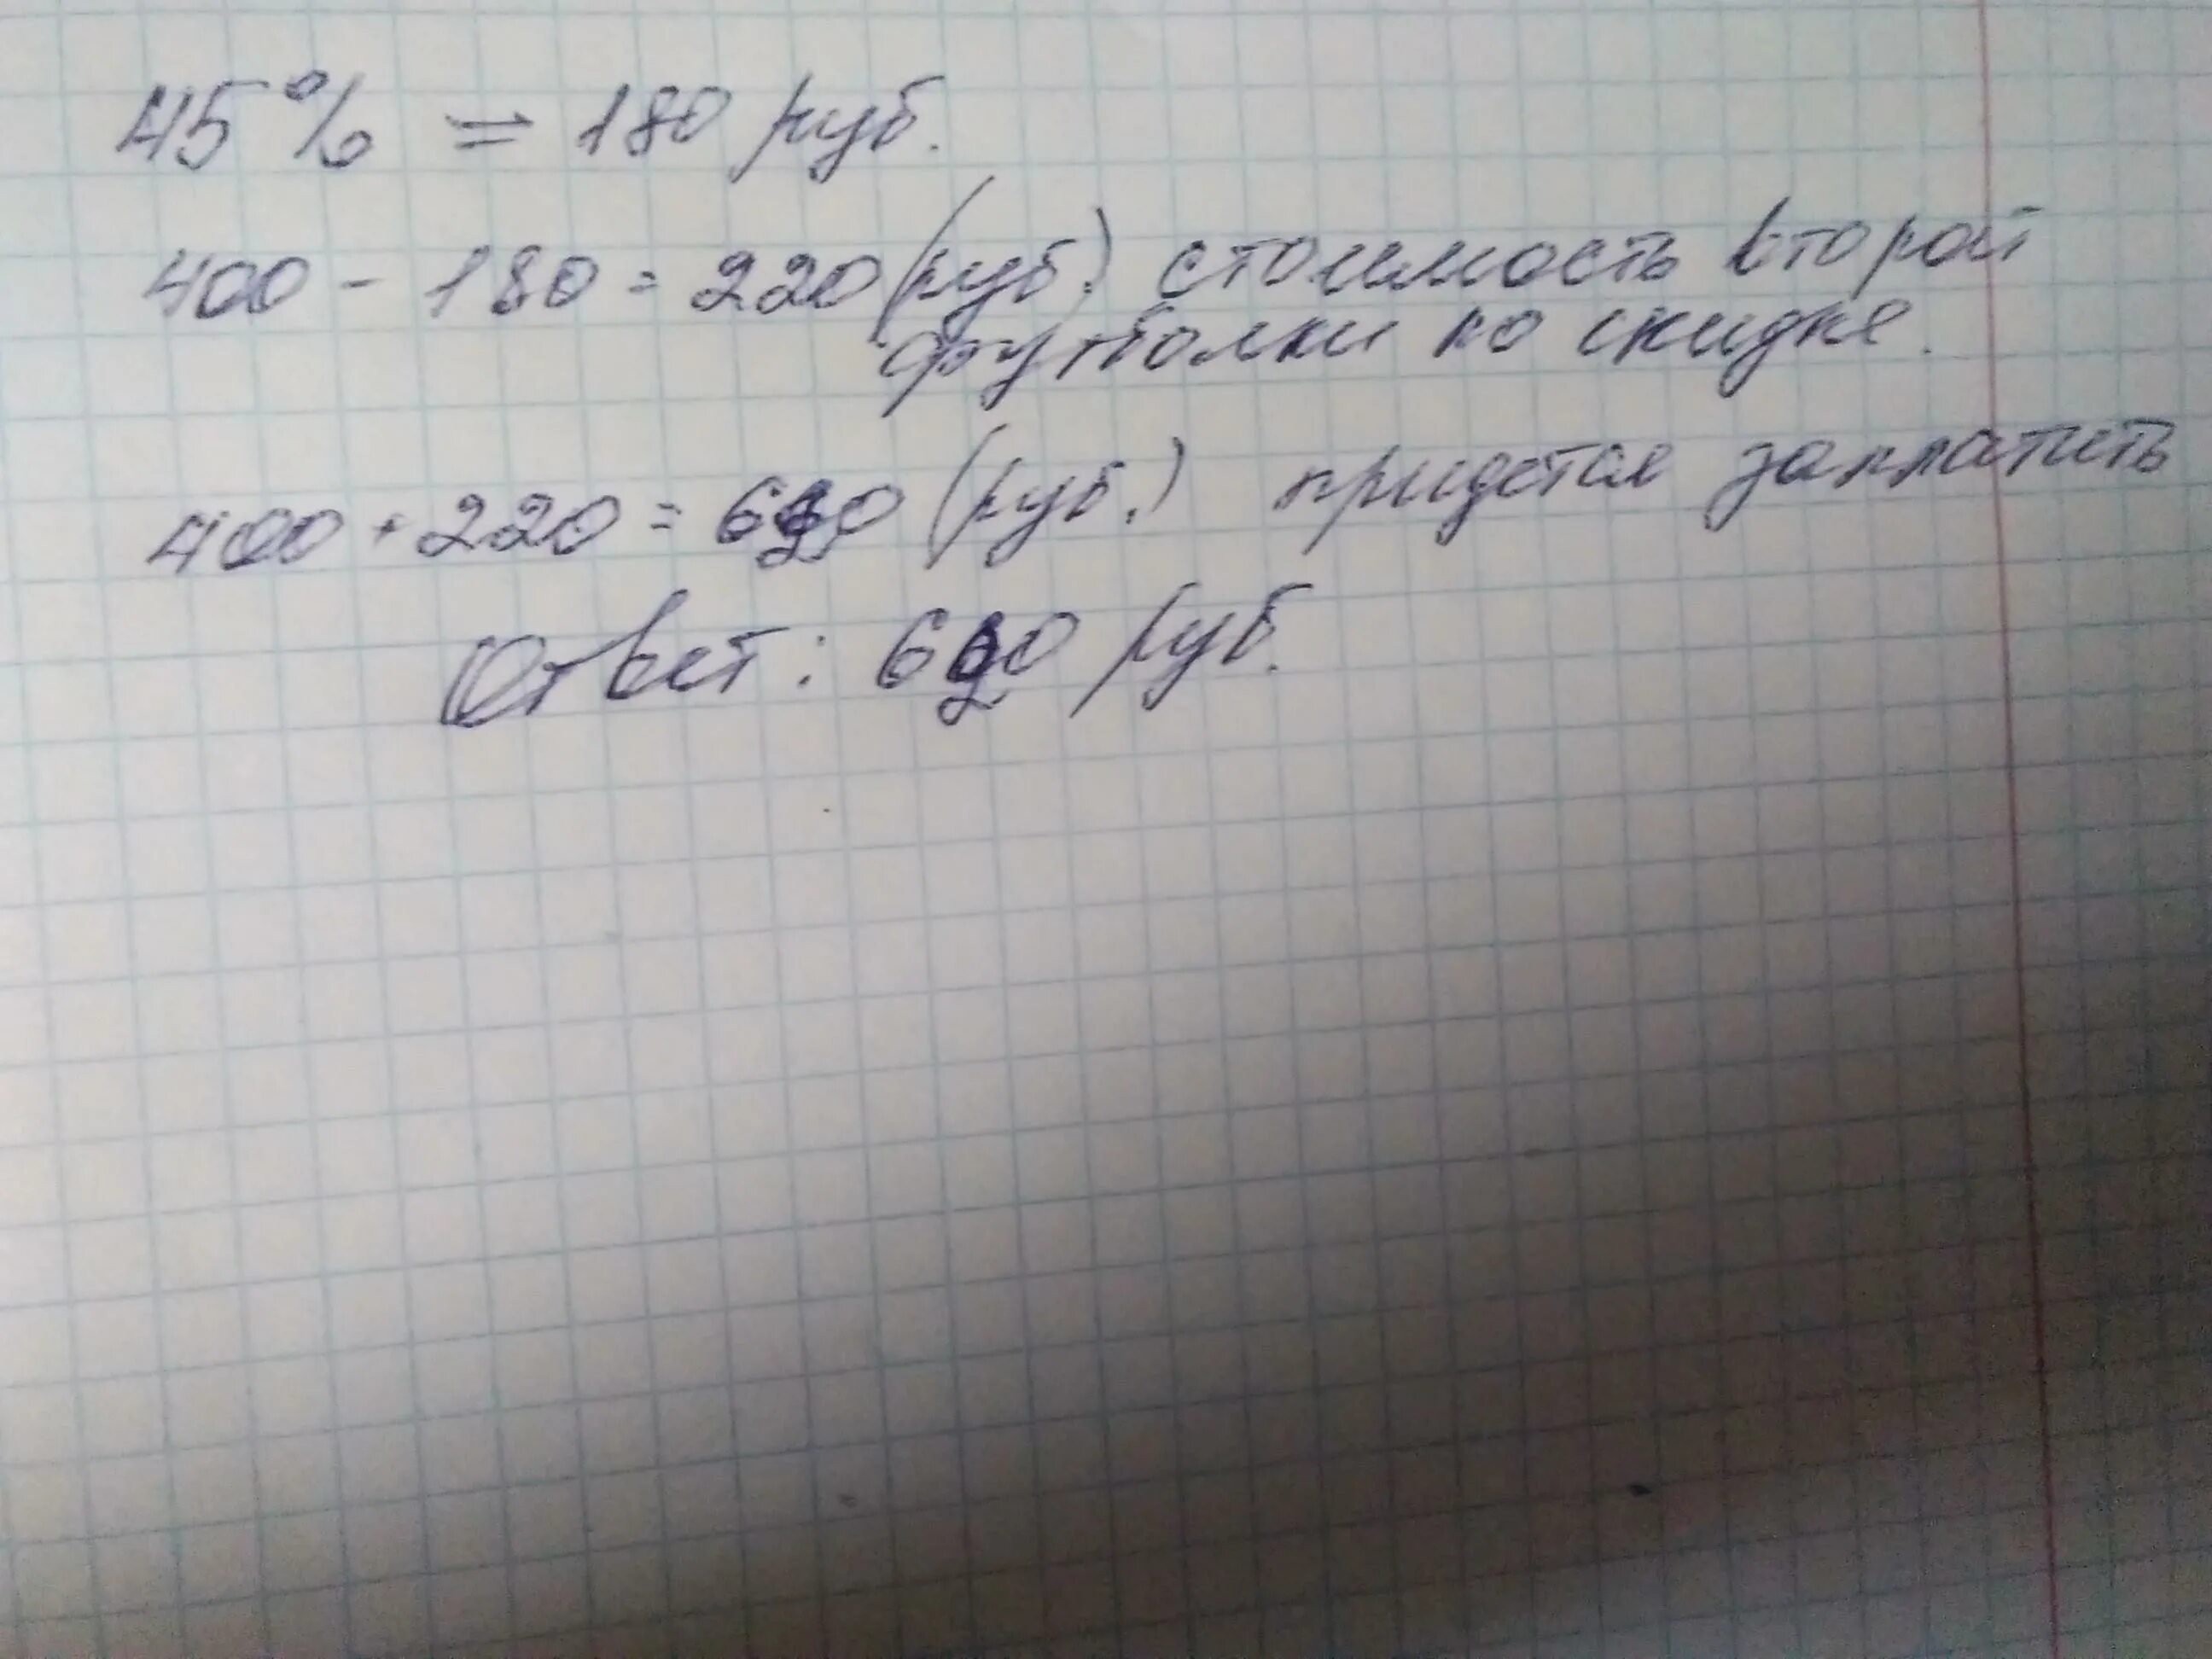 45% = 180 руб.
400 - 180 = 220 (руб.) стоимость второй
футболки по скидке.
400 + 220 = 620 (руб.) придется заплатить
Ответ: 620 руб.